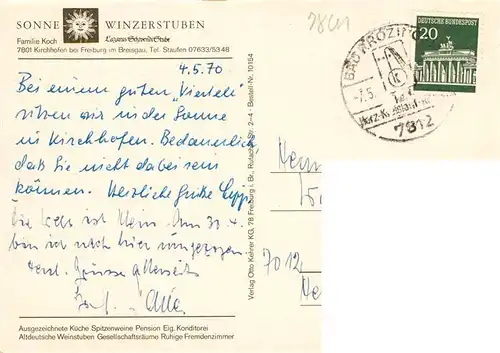 SONNE WINZERSTUBEN
Familie Koch Lazarus-Schwendi-Stube
7801 Kirchhofen bei Freiburg im Breisgau, Tel. Staufen 07633/5348
4.5.70
Bei einem guten „Viertele"
sitzen wir in der Sonne
in Kirchhofen. Bedauerlich
daß Sie nicht dabei sein
können. Herzliche Grüße
ist klein. Am 30.4.
bin ich nach hier umgezogen
Herzl. Grüsse allerseits
Ausgezeichnete Küche Spitzenweine Pension Eig. Konditorei
Altdeutsche Weinstuben Gesellschaftsräume Ruhige Fremdenzimmer
Verlag Otto Keirer KG, 78 Freiburg i. Br., Rutacker Str. 2-4 · Bestell-Nr. 10154
DEUTSCHE BUNDESPOST
20
BAD KROZIN
7812
7012